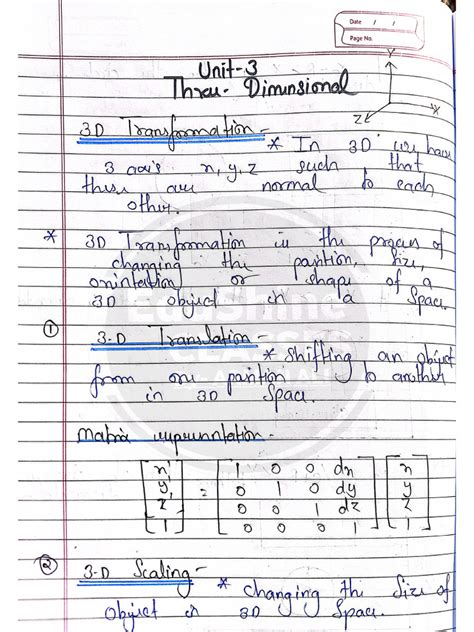 Date / /
Page No.
Unit-3
Three-Dimensional
Y
X
Z
3D Transformation -
* In 3D we have
3 axis x, y, z such that
these are normal to each
other.
* 3D Transformation is the process of
changing the position, size,
orientation or shape of a
3D object in a space.
① 3-D Translation -
* Shifting an object
from one position to another
in 3D space.
Matrix representation -
[x'] = [1 0 0 dx] [x]
[y'] [0 1 0 dy] [y]
[z'] [0 0 1 dz] [z]
[1] [0 0 0 1] [1]
② 3-D Scaling -
* changing the size of
Object in 3D Space.